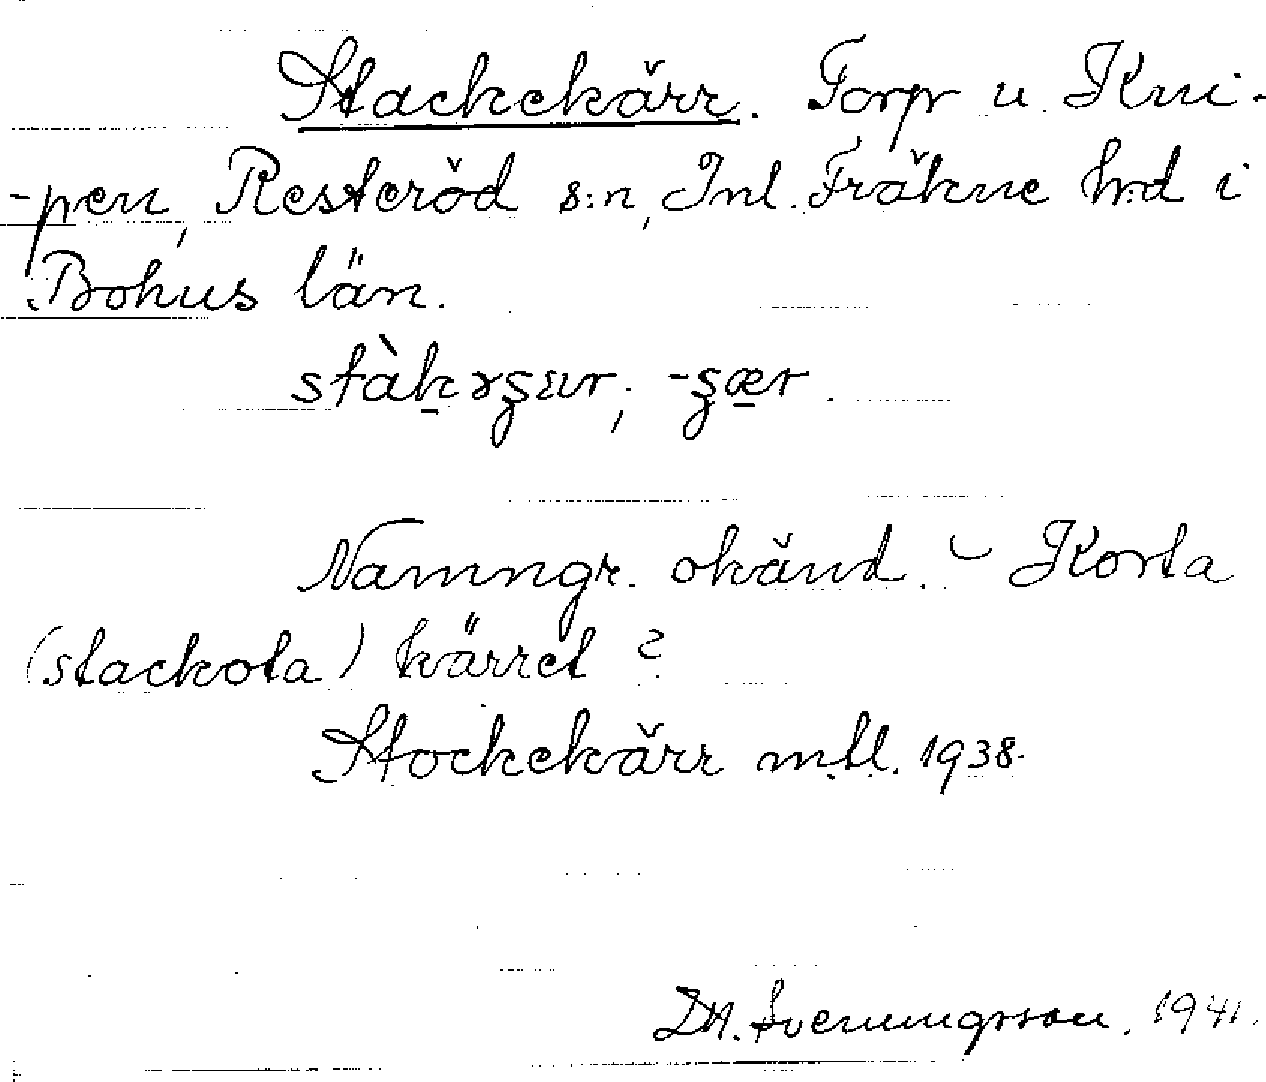 Stackekärr. Torp u. Kni-
-pen, Resteröd s:n, Inl. Fräkne h:d i
Bohus län.
Namngr. okänd. - Korta
(stackota) kärret?
Stockekärr mtl. 1938.
D.A. Svenningsson. 1941.